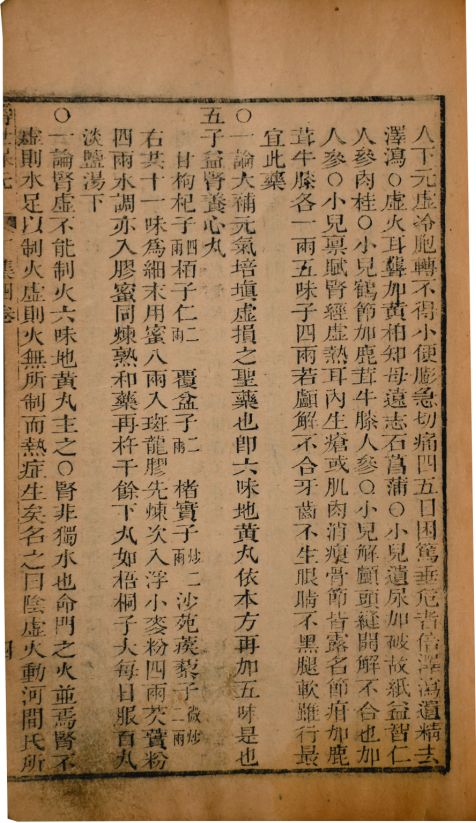 人下元虛冷胞轉不得小便膨急切痛四五日困篤垂危者倍澤瀉遺精去
澤瀉○虛火耳聾加黃柏知母遠志石菖蒲○小兒遺尿加破故紙益智仁
人參肉桂○小兒鶴節加鹿茸牛膝人參○小兒解顱頭縫開解不合也加
人參○小兒稟賦腎經虛熱耳內生瘡或肌肉消瘦骨節皆露名節疳加鹿
茸牛膝各一兩五味子四兩若顱解不合牙齒不生眼睛不黑腿軟難行最
宜此藥
○一論大補元氣培塡虛損之聖藥也卽六味地黃丸依本方再加五味是也
五子益腎養心丸
甘枸杞子四兩栢子仁二兩 覆盆子二兩 楮實子炒二兩沙苑蒺藜子微炒二兩
右共十一味爲細末用蜜八兩入斑龍膠先煉次入浮小麥粉四兩芡實粉
四兩水調亦入膠蜜同煉熟和藥再杵千餘下丸如梧桐子大每日服百丸
淡鹽湯下
○一論腎虛不能制火六味地黃丸主之○腎非獨水也命門之火並焉腎不
虛則水足以制火虛則火無所制而熱症生矣名之曰陰虛火動河間氏所